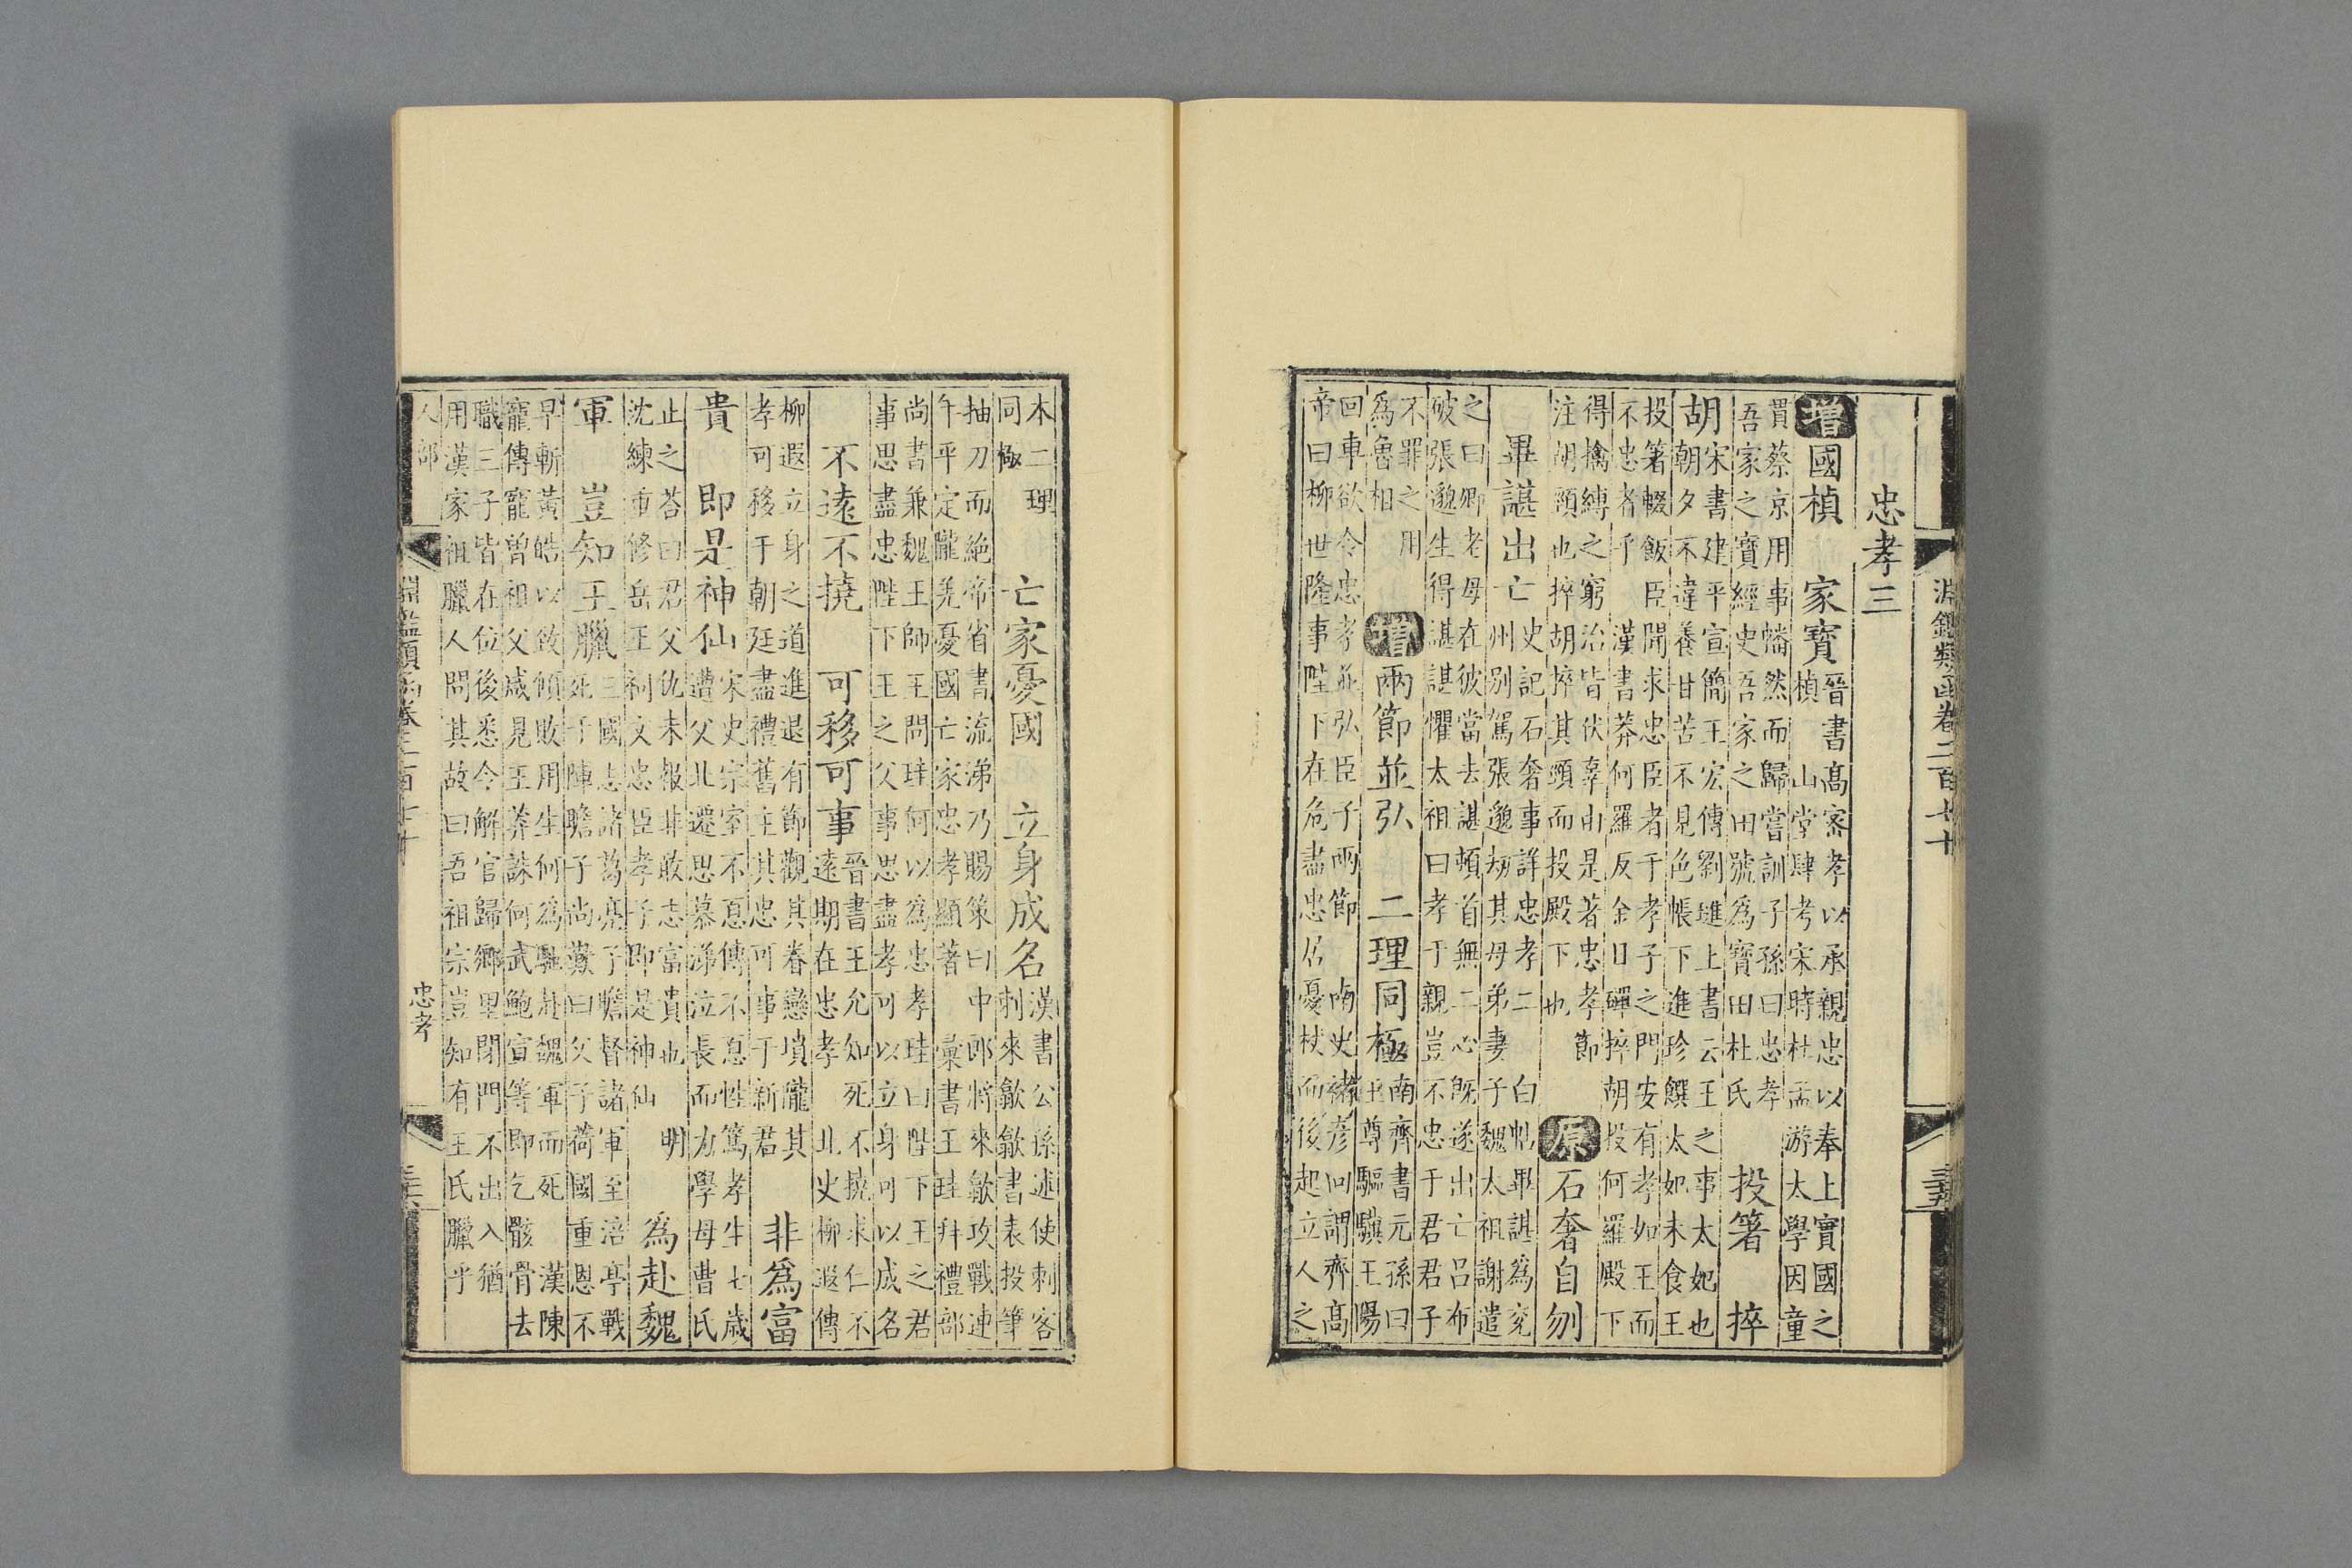 淵鑑類函卷二百七十
忠孝三
增國楨 家寶
晉書髙密孝以承親忠以奉上實國之
楨 山堂肆考宋時杜孟游太學因童
貫蔡京用事幡然而歸嘗訓子孫曰忠孝
吾家之寶經史吾家之田號爲寶田杜氏
投箸 捽
胡
宋書建平宣簡王宏傳劉璡上書云王之事太妃也
朝夕不違養甘苦不見色帳下進珍饌太妃未食王
投箸輟飯臣聞求忠臣者于孝子之門安有孝如王而
不忠者乎 漢書莽何羅反金日磾捽胡投何羅殿下
得擒縛之窮治皆伏辜由是著忠孝節
注胡頸也捽胡捽其頸而投殿下也
原 石奢自刎
畢諶出亡
史記石奢事詳忠孝二 白帖畢諶爲兖
州別駕張邈刼其母弟妻子魏太祖謝遣
之曰卿老母在彼當去諶頓首無二心旣遂出亡呂布
破張邈生得諶諶懼太祖曰孝于親豈不忠于君君子
不罪之用
爲魯相
增兩節並弘 二理同極
南齊書元孫曰
王尊驅驥王陽
回車欲令忠孝並弘臣子兩節 南史褚彦回謂齊髙
帝曰柳世隆事陛下在危盡忠居憂杖而後起立人之
本二理
同極
亡家憂國 立身成名
漢書公孫述使刺客
刺來歙歙書表投筆
抽刀而絶帝省書流涕乃賜策曰中郎將來歙攻戰連
午平定隴羌憂國亡家忠孝顯著 彙書王珪拜禮部
尚書兼魏王師王問珪何以爲忠孝珪曰陛下王之君
事思盡忠陛下王之父事思盡孝可以立身可以成名
不遠不撓 可移可事
晉書王允知死不撓求仁不
遠期在忠孝 北史柳遐傳
柳遐立身之道進退有節觀其眷戀墳隴其
孝可移于朝廷盡禮舊主其忠可事于新君
非爲富
貴 即是神仙
宋史宗室不息傳不息性篤孝生七歲
遭父北遷思慕涕泣長而力學母曹氏
止之答曰君父仇未報非敢志富貴也 明
沈練重修岳王祠文忠臣孝子即是神仙
爲赴魏
軍 豈知王臘
三國志諸葛亮子瞻督諸軍至涪亭戰
死于陣瞻子尚嘆曰父子荷國重恩不
早斬黃皓以致傾敗用生何爲驅赴魏軍而死 漢陳
寵傳寵曾祖父咸見王莽誅何武鮑宣等即乞骸骨去
職三子皆在位後悉令解官歸鄉里閉門不出入猶
用漢家祖臘人問其故曰吾祖宗豈知有王氏臘乎
人部
淵鑑類函卷二百七十
忠孝